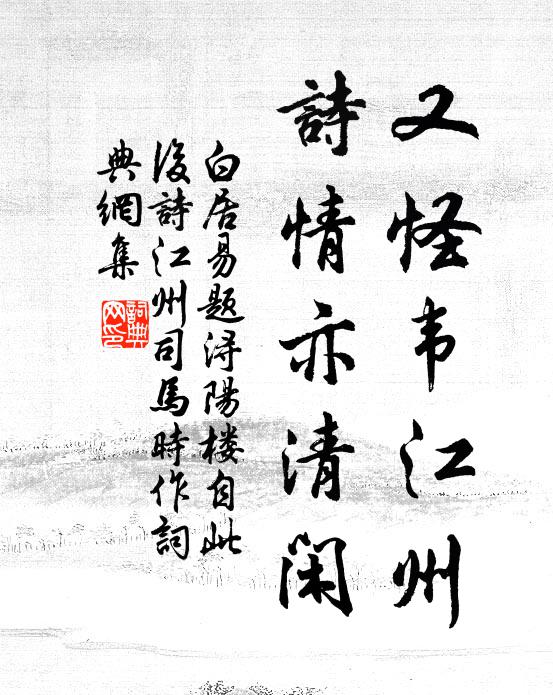 又怪韦江州
詩情亦清閑
白居易题浔陽楼自此
後詩江州司馬時作詞
典網集
詞典
网印